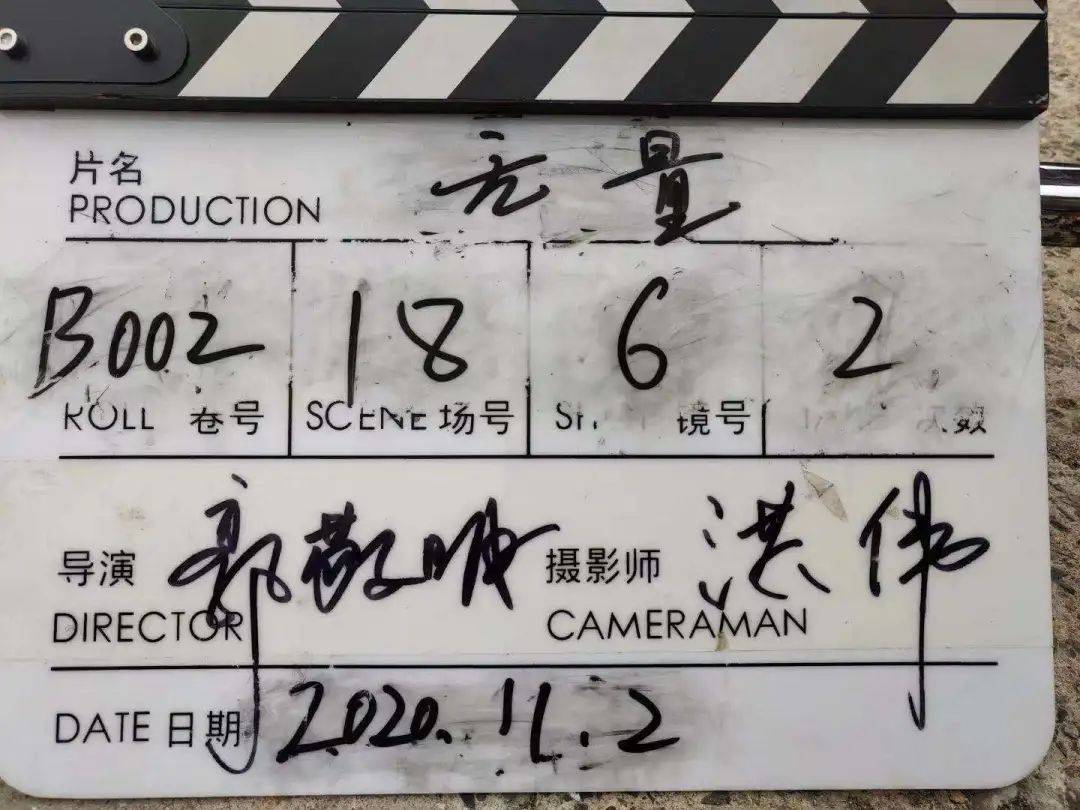 片名 无量
PRODUCTION
B002 18 6 2
ROLL 卷号 SCENE 场号 镜号 次数
导演 郭敬 摄影师 洪伟
DIRECTOR CAMERAMAN
DATE 日期 2020.11.2